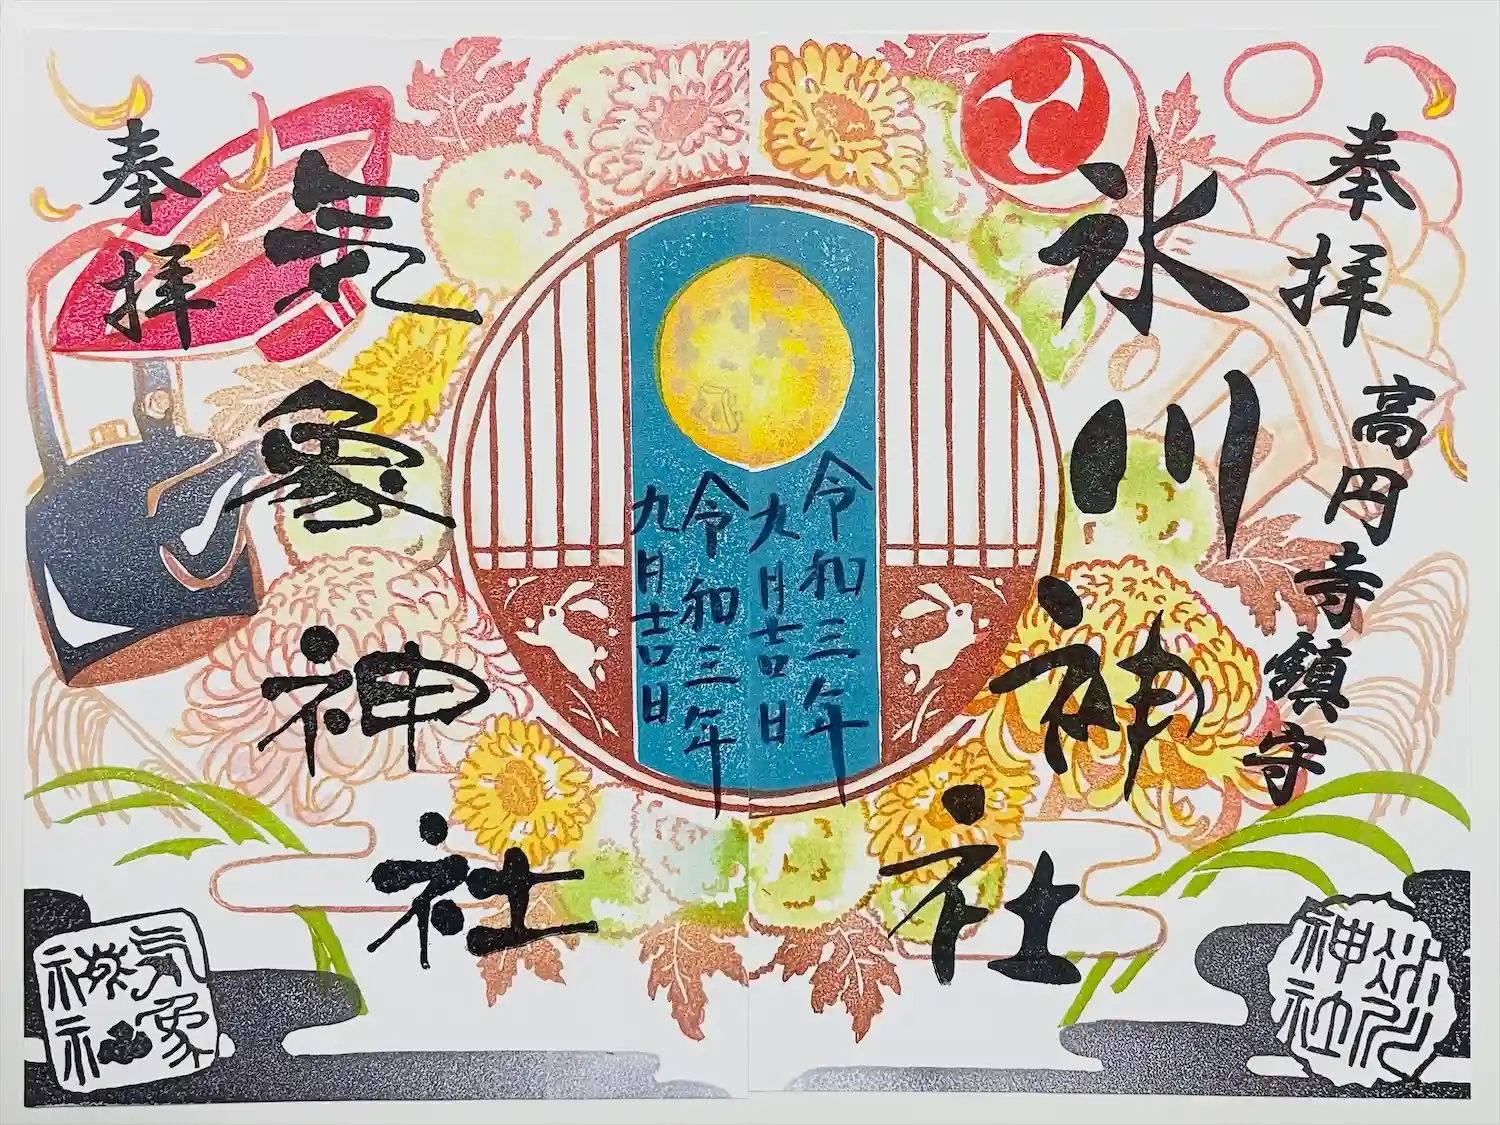 奉拝
高円寺鎮守
氷川神社
令和三年
九月吉日
氷川神社
令和三年
九月吉日
気象神社
奉拝